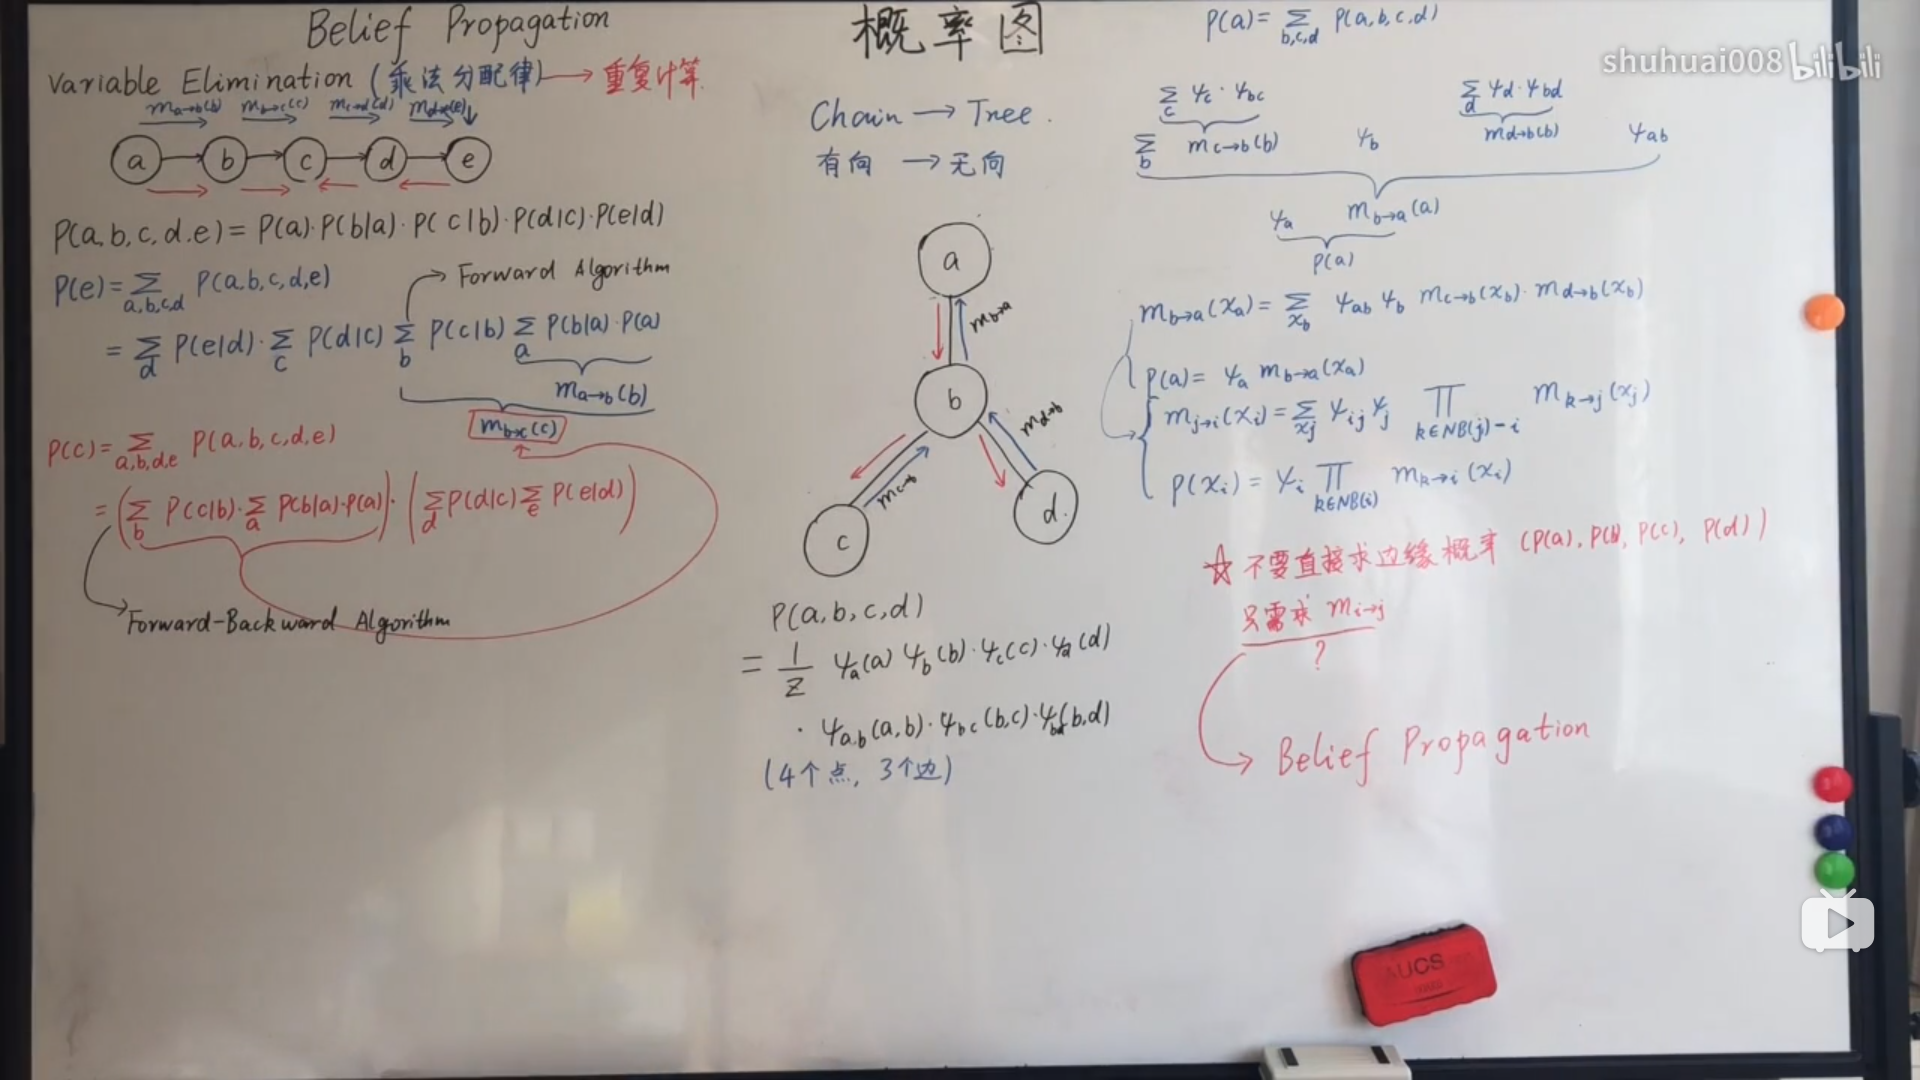 Belief Propagation
Variable Elimination (乘法分配律) → 重复计算
m_{a→b}(b) m_{b→c}(c) m_{c→d}(d) m_{d→e}(e)
a b c d e
P(a,b,c,d.e) = P(a)·P(b|a)·P(c|b)·P(d|c)·P(e|d)
P(e) = ∑_{a,b,c,d} P(a,b,c,d,e)
→ Forward Algorithm
= ∑_d P(e|d)·∑_c P(d|c) ∑_b P(c|b) ∑_a P(b|a)·P(a)
m_{a→b}(b)
m_{b→c}(c)
P(c) = ∑_{a,b,d,e} P(a,b,c,d,e)
= (∑_b P(c|b)·∑_a P(b|a)·P(a))·(∑_d P(d|c) ∑_e P(e|d))
Forward-Backward Algorithm
概率图
Chain → Tree.
有向 → 无向
a
m_{b→a}
b
m_{d→b}
m_{c→b}
d.
c
P(a,b,c,d)
= 1/Z ψ_a(a) ψ_b(b)·ψ_c(c)·ψ_d(d)
· ψ_{a,b}(a,b)·ψ_{bc}(b,c)·ψ_{bd}(b,d)
(4个点, 3个边)
P(a) = ∑_{b,c,d} P(a,b,c,d)
∑_c ψ_c·ψ_{bc} ∑_d ψ_d·ψ_{bd}
∑_b m_{c→b}(b) ψ_b m_{d→b}(b) ψ_{ab}
ψ_a m_{b→a}(a)
P(a)
m_{b→a}(x_a) = ∑_{x_b} ψ_{ab} ψ_b m_{c→b}(x_b)·m_{d→b}(x_b)
P(a) = ψ_a m_{b→a}(x_a)
m_{j→i}(x_i) = ∑_{x_j} ψ_{ij} ψ_j ∏_{k∈NB(j)-i} m_{k→j}(x_j)
P(x_i) = ψ_i ∏_{k∈NB(i)} m_{k→i}(x_i)
☆ 不要直接求边缘概率 (P(a), P(b), P(c), P(d))
只需求 m_{i→j}
?
Belief Propagation
shuhuai008 bilibili
AUCS